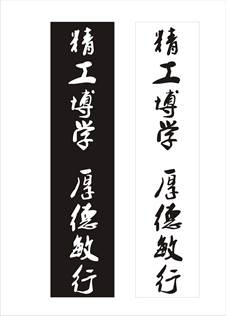 精工博学 厚德敏行
精工博学 厚德敏行